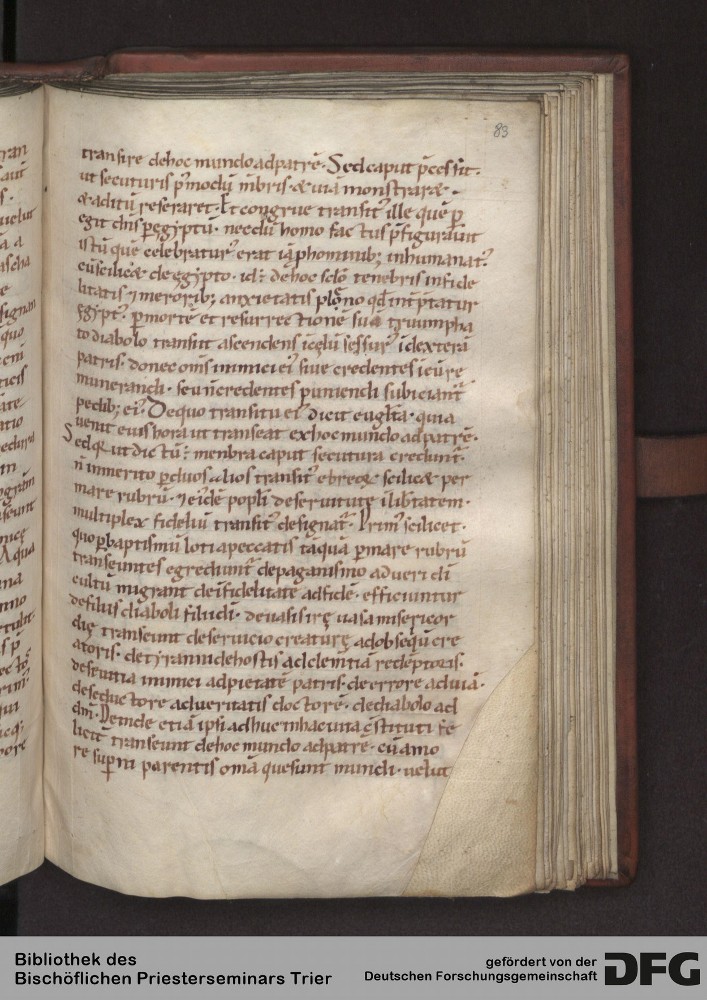 83
transire dehoc mundo adpatrē. Sed caput p̄cessit.
ut secuturis p̄modū mēbris. & uiā monstraret.
& aditū reseraret. Et congrue transit᷒ ille quē p̄
egit chr̄s p̄ egyptū. necdū homo factus p̄figurauit
istū quē celebratur᷒ erat iā p̄ hominib; inhumanat᷒.
eū scilic& de ęgypto. id ÷ dehoc sclō tenebris infide
litatis ⁊ meroribꝫ anxietatis plēno qd int̄p̄tatur
ęgypt᷒. p̄mortē et resurrectionē suā triumpha
to diabolo transiit ascendens ī cęlū sessur᷒ ī dexterā
patris. donec om̄s inimici ei᷒ siue credentes
munerandi. seu n̄ credentes puniendi subiciant᷒
pedibꝫ ei᷒. De quo transitu ei᷒ dicit euglīsta. quia
uenit eius hora ut transeat ex hoc mundo ad patrē.
Sed ut dictū ÷ menbra caput secutura credunt᷒.
n̄ inmerito p̄ duos alios transit᷒ ebreoꝝ scilic& per
mare rubrū. ⁊ eiꝰdē popłi deseruitute ī libtatem.
multiplex fideliū transit᷒ designat᷒. Prim᷒ scilicet.
quo p̄ baptismū loti apeccatis tāquā p̄ mare rubrū
transeuntes egrediunt᷒ depaganismo ad ueri dī
cultū migrant de infidelitate ad fidē. efficiuntur
de filiis diaboli filii dī. de uasis irę uasa misericor
dię transeunt de seruicio creaturę ad obsequiū cre
atoris. de tyrannide hostis ad clementiā redēptoris.
de seuitia inimici ad pietatē patris. de errore ad uiā.
de seductore ad ueritatis doctorē. de diabolo ad
dm̄. Deinde etiā ipsi adhuc in hac uita c̄stituti fe
licit᷒ transeunt dehoc mundo ad patrē. cū amo
re sup̄ni parentis om̄a que sunt mundi. uelut
Bibliothek des
Bischöflichen Priesterseminars Trier
gefördert von der
Deutschen Forschungsgemeinschaft
DFG